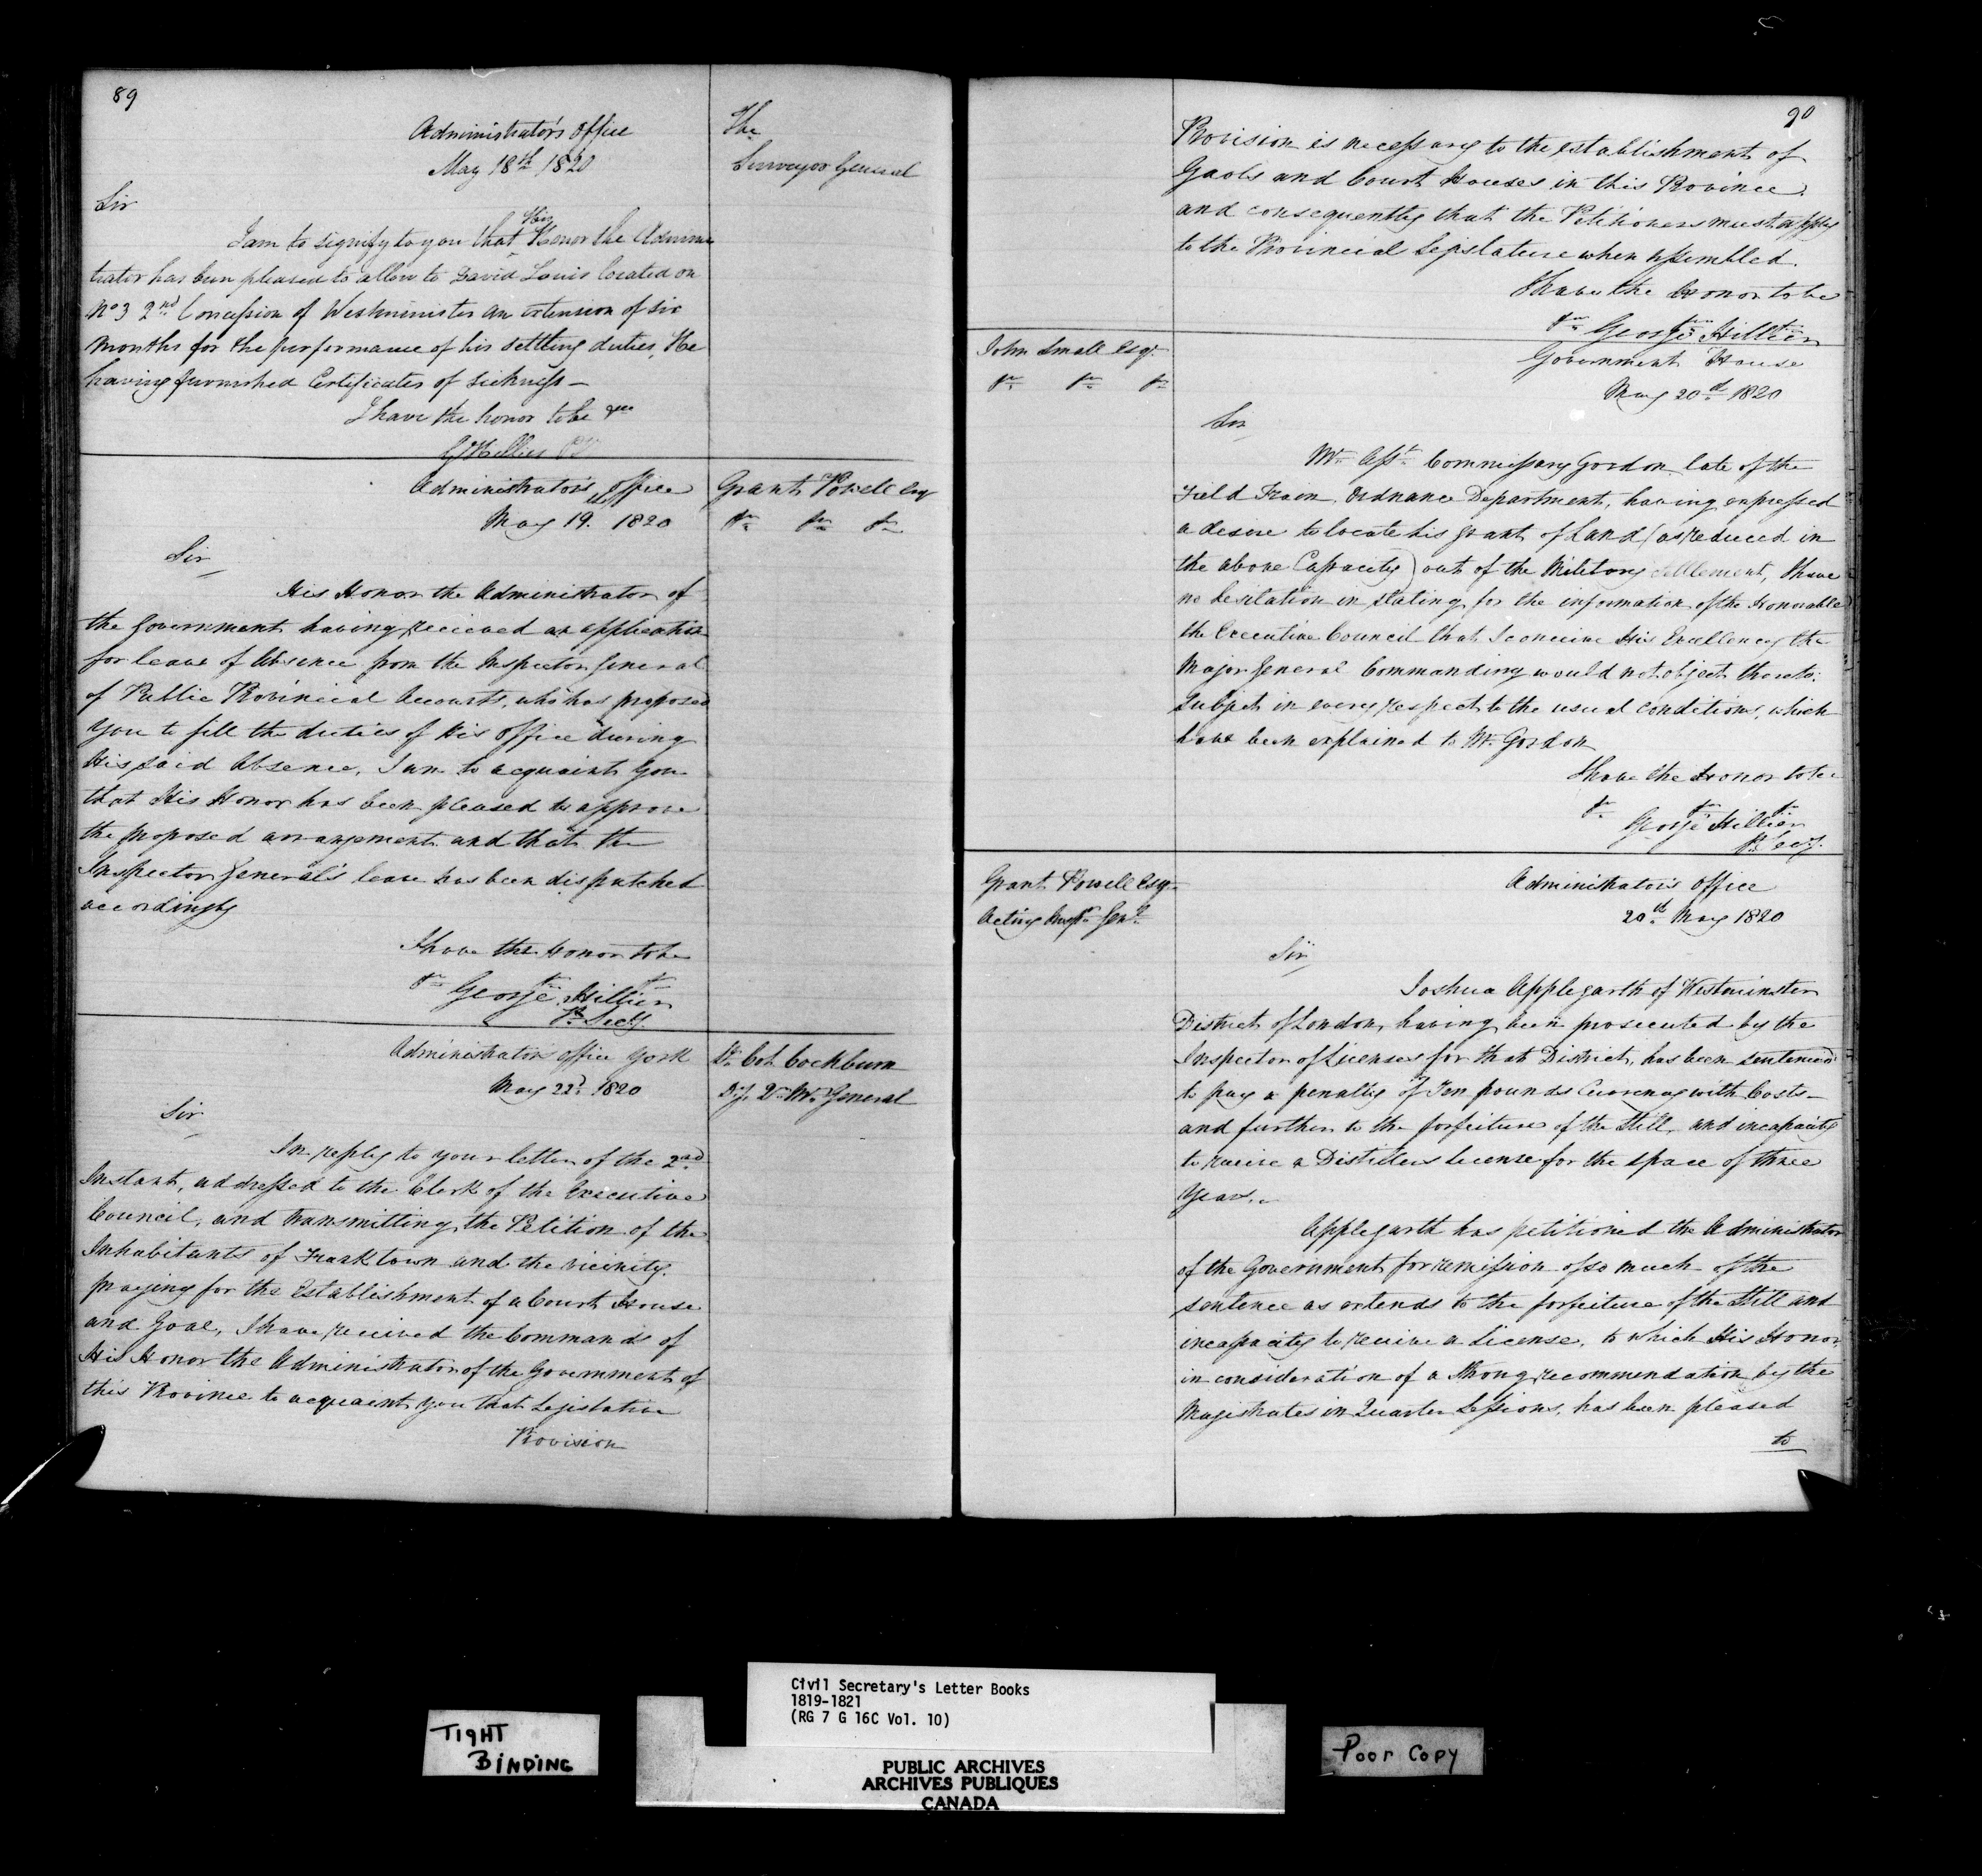 89
Administrator's Office
May 18th 1820
The
Surveyor General
Sir
I am to signify to you that His Honor the Adminis
trator has been pleased to allow to David Louis located on
No 3 2nd Concession of Westminister an extension of six
Months for the performance of his settling duties, He
having furnished Certificates of Sickness —
I have the honor to be &c
G Hillier PS
Administrator's Office
May 19. 1820
Grant Powell Esqr
&c &c &c
Sir
His Honor the Administrator of
the Government having recieved an application
for leave of Absence from the Inspector General
of Public Provincial Accounts, who has proposed
You to fill the duties of His Office during
His said Absence, I am to acquaint You
that His Honor has been pleased to approve
the proposed arrangement and that the
Inspector General's leave has been dispatched
accordingly
I have the Honor to be
&c &c &c
George Hillier
P. Secy.
Administrators office York
May 22d 1820
Lt Col Cockburn
Dy Qr Mr General
Sir
In reply to your letter of the 2nd
Instant, addressed to the Clerk of the Executive
Council, and transmitting the Petition of the
Inhabitants of Franktown and the vicinity.
praying for the Establishment of a Court House
and Goal, I have received the Commands of
His Honor the Administrator of the Government of
this Province to acquaint you that Legislative
Provision
90
Provision is necessary to the establishment of
Gaols and Court Houses in this Province.
and consequently that the Petitioners must apply
to the Provincial Legislature when assembled.
I have the Honor to be
&c &c &c
George Hillier
John Small Esqr.
&c &c &c
Government House
May 20th 1820
Sir
Mr. Asst. Commissary Gordon late of the
Field Train Ordnance Department, having expressed
a desire to locate his grant of Land (as reduced in
the above Capacity) out of the Military Settlement, I have
no hesitation in stating for the information of the Honorable
the Executive Council that I concieve His Excellency the
Major General Commanding would not object thereto.
Subject in every respect to the usual conditions, which
have been explained to Mr. Gordon
I have the Honor to be
&c &c &c
George Hillier
P. Secy.
Grant Powell Esqr.
Acting Inspr. Genl.
Administrators Office
20th May 1820
Sir
Joshua Applegarth of Westminster
District of London, having been prosecuted by the
Inspector of Licenses for that District, has been sentenced
to pay a penalty of Ten pounds Currency with Costs —
and further to the forfeiture of the Still, and incapacity
to receive a Distillers License for the space of three
Years.
Applegarth has petitioned the Administrator
of the Government for remission of so much of the
sentence as extends to the forfeiture of the Still and
incapacity to receive a License, to which His Honor,
in consideration of a Strong recommendation by the
Magistrates in Quarter Sessions, has been pleased
to
Civil Secretary's Letter Books
1819-1821
(RG 7 G 16C Vol. 10)
TIGHT
BINDING
PUBLIC ARCHIVES
ARCHIVES PUBLIQUES
CANADA
Poor Copy